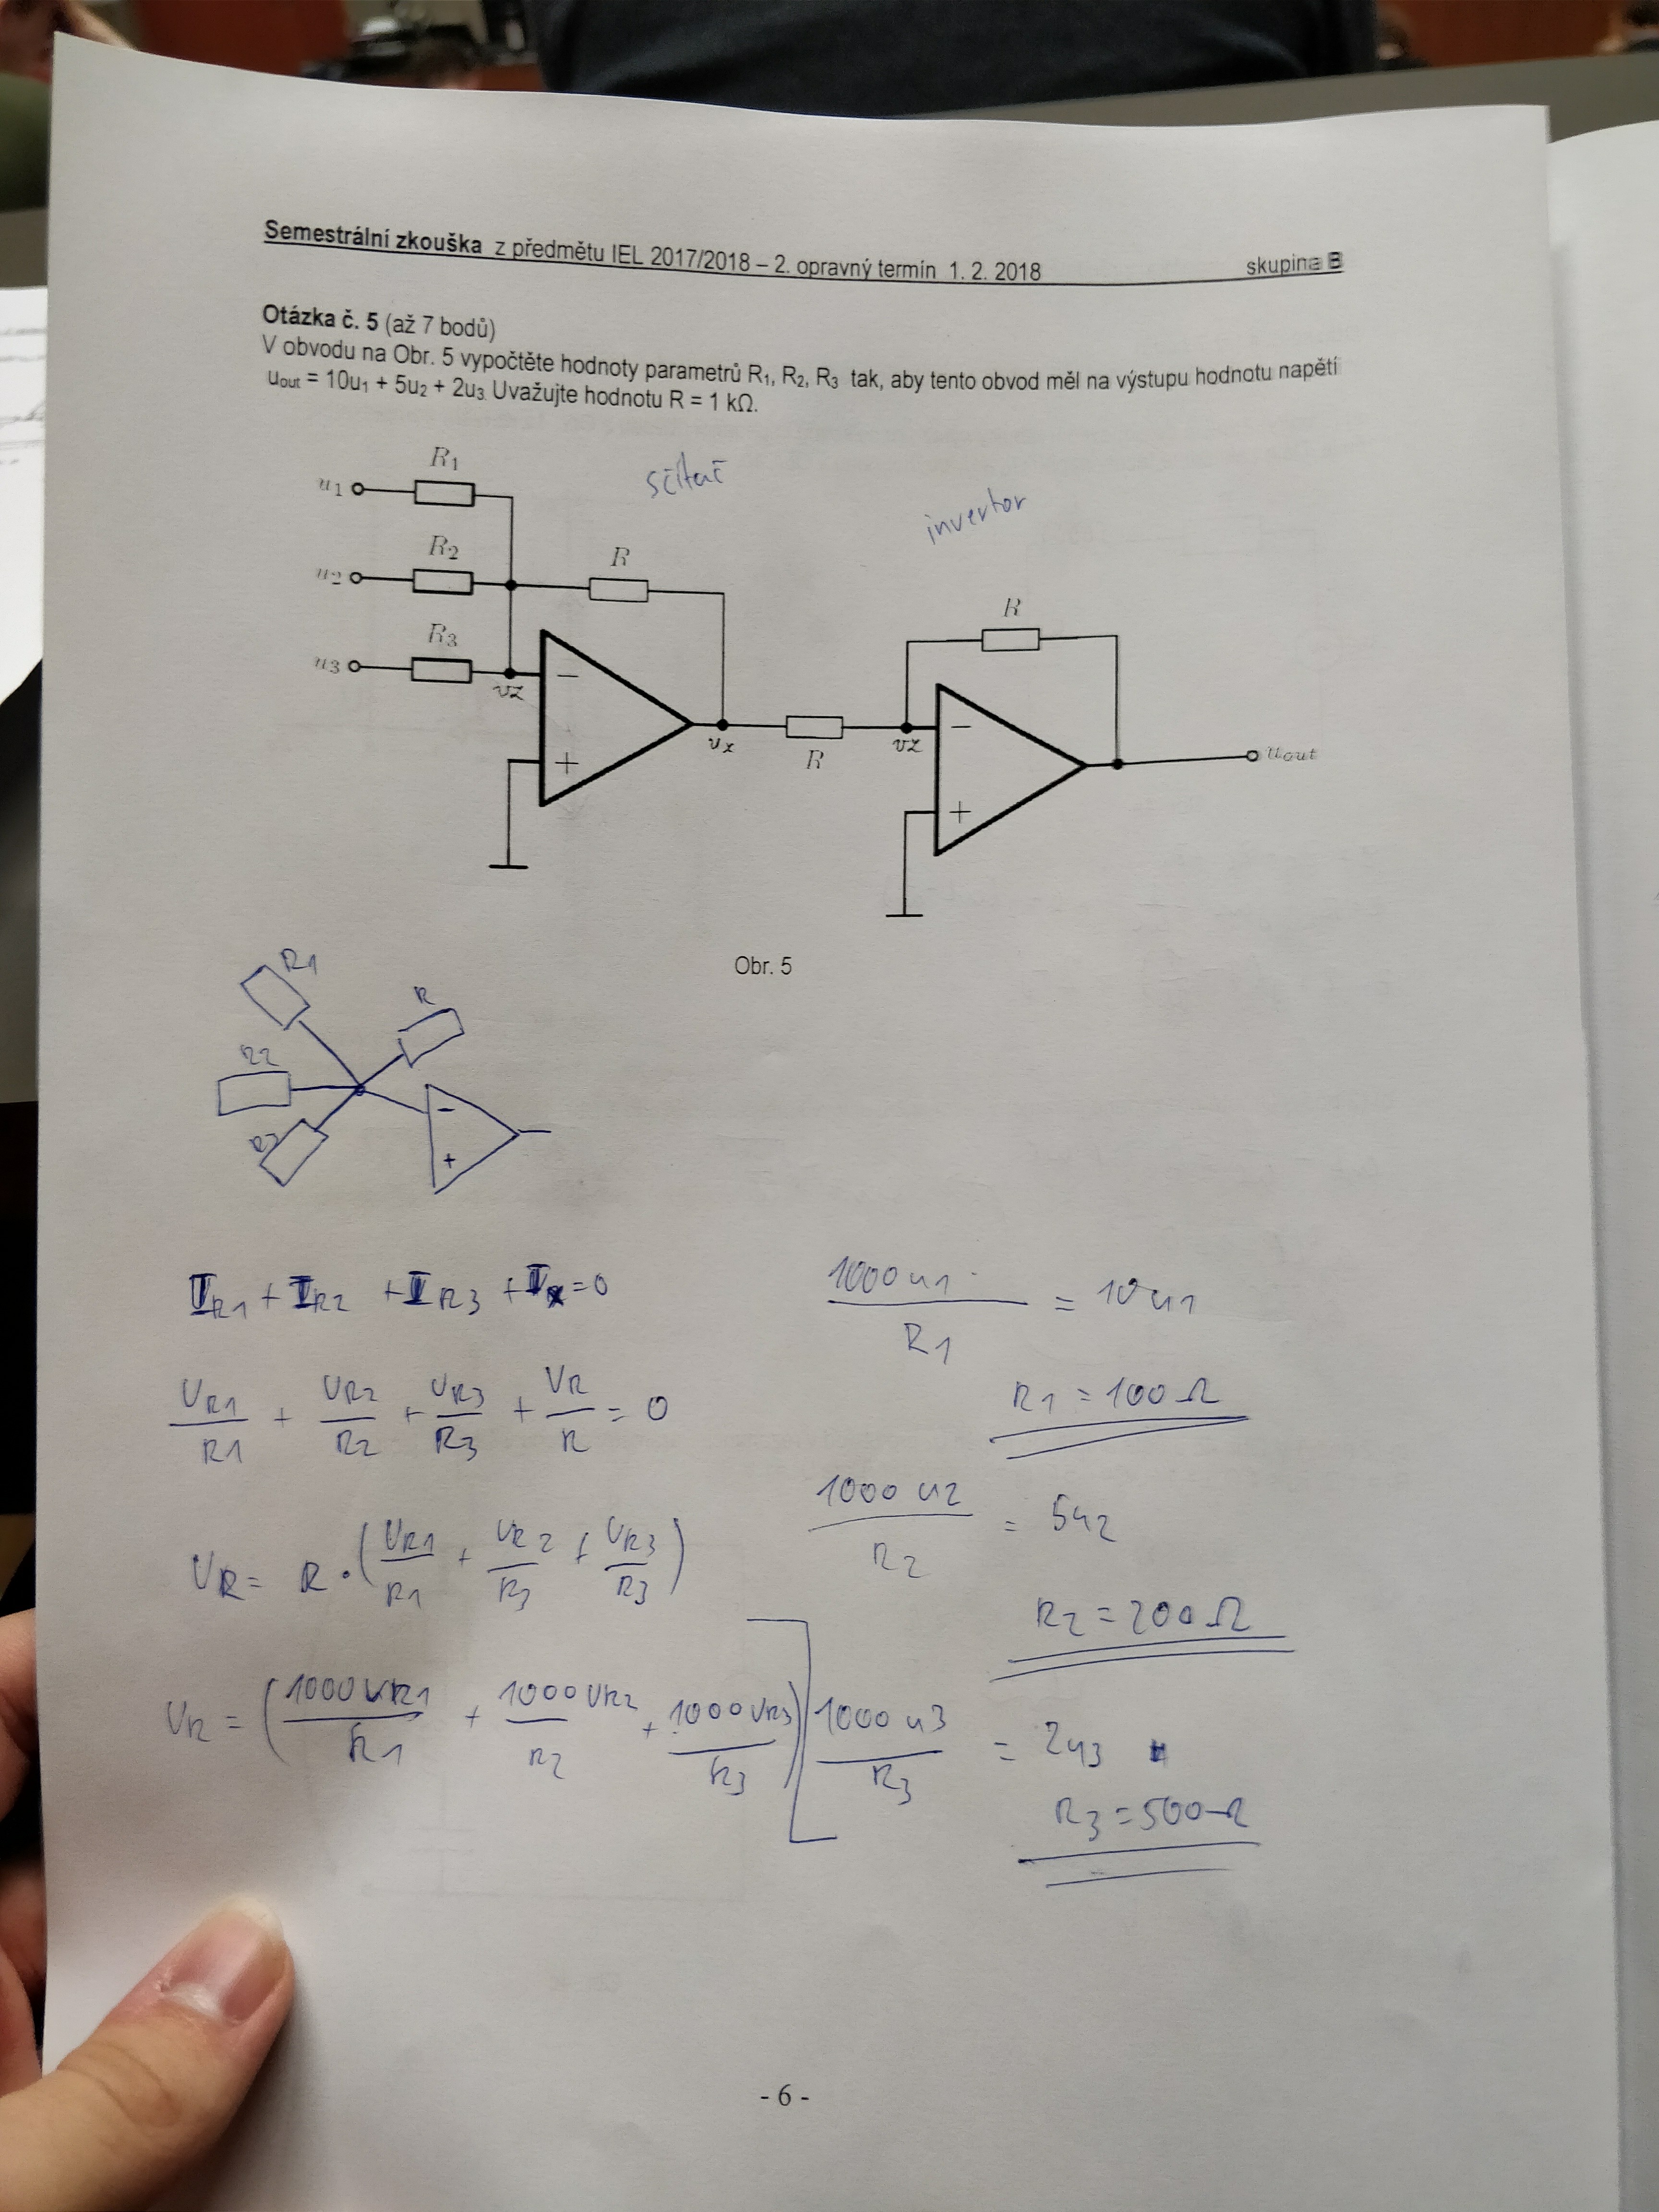 Semestrální zkouška z předmětu IEL 2017/2018 – 2. opravný termín 1. 2. 2018 skupina B
Otázka č. 5 (až 7 bodů)
V obvodu na Obr. 5 vypočtěte hodnoty parametrů R₁, R₂, R₃ tak, aby tento obvod měl na výstupu hodnotu napětí
uout = 10u₁ + 5u₂ + 2u₃. Uvažujte hodnotu R = 1 kΩ.
R1
u1
sčítač
invertor
R2
u2
R
R
R3
u3
vz
−
+
vx
R
vz
−
+
uout
Obr. 5
R1
R
R2
R3
−
+
IR1 + IR2 + IR3 + Ix = 0
UR1/R1 + UR2/R2 + UR3/R3 + UR/R = 0
UR = R · (UR1/R1 + UR2/R3 + UR3/R3)
UR = (1000UR1/R1 + 1000UR2/R2 + 1000UR3/R3)
1000u1/R1 = 10u1
R1 = 100Ω
1000u2/R2 = 5u2
R2 = 200Ω
1000u3/R3 = 2u3
R3 = 500Ω
- 6 -